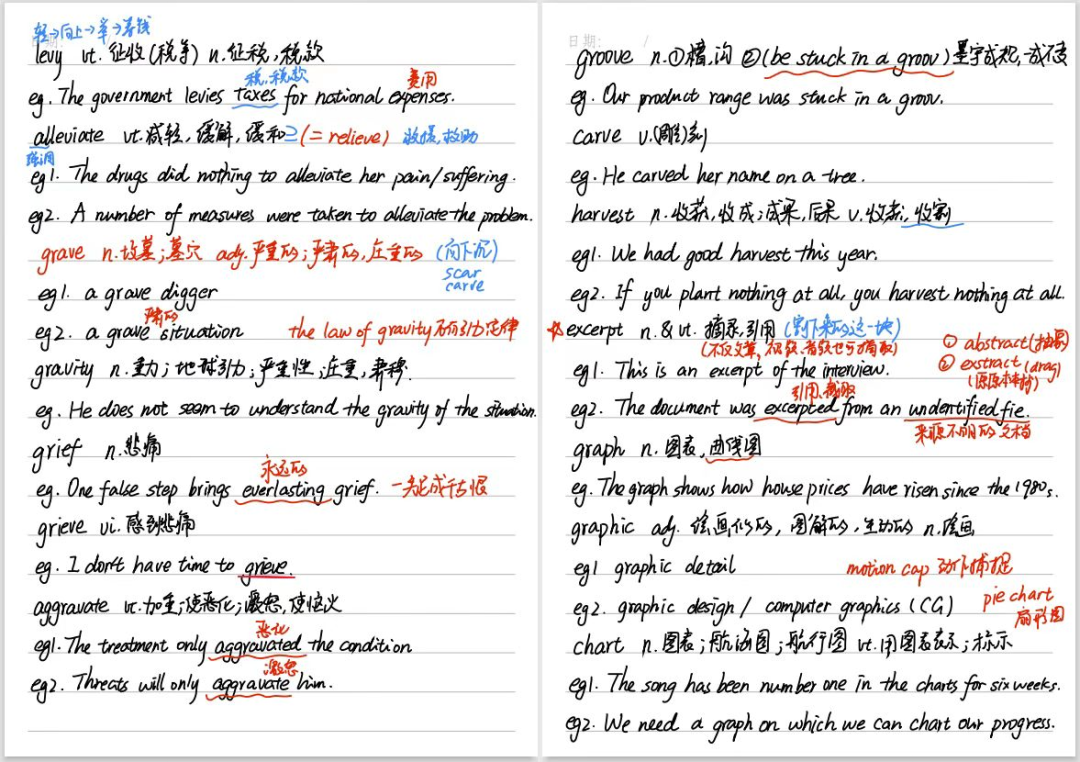 轻→向上→举→筹钱
levy vt. 征收(税等) n. 征税,税款
税,税款 费用
eg. The government levies taxes for national expenses.
alleviate vt. 减轻,缓解,缓和 (= relieve) 救援,救助
强调
eg1. The drugs did nothing to alleviate her pain/suffering.
eg2. A number of measures were taken to alleviate the problem.
grave n. 坟墓;墓穴 adj. 严重的;严肃的,庄重的 (向下沉)
scar
carve
eg1. a grave digger
严肃的
eg2. a grave situation the law of gravity 万有引力定律
gravity n. 重力;地球引力;严重性;庄重,肃穆.
eg. He does not seem to understand the gravity of the situation.
grief n. 悲痛
永远的
eg. One false step brings everlasting grief. 一失足成千古恨
grieve vi. 感到悲痛
eg. I don't have time to grieve.
aggravate vt. 加重;使恶化;激怒,使恼火
恶化
eg1. The treatment only aggravated the condition
激怒
eg2. Threats will only aggravate him.
日期: /
groove n. ①槽,沟 ②(be stuck in a groov) 墨守成规,一成不变
eg. Our product range was stuck in a groov.
carve v. (雕)刻
eg. He carved her name on a tree.
harvest n. 收获,收成;成果,后果 v. 收获,收割
eg1. We had good harvest this year.
eg2. If you plant nothing at all, you harvest nothing at all.
☆excerpt n. & vt. 摘录,引用 (割下来的这一块)
(不仅文章, 视频、音频也可摘取) ① abstract (抽象)
eg1. This is an excerpt of the interview. ② exstract (drag)
引用,截取
eg2. The document was excerpted from an undentified fie.
来源不明的文档
graph n. 图表,曲线图
eg. The graph shows how house prices have risen since the 1980s.
graphic adj. 绘画似的,图解的,生动的 n. 绘画
eg1 graphic detail motion cap 动作捕捉
eg2. graphic design / computer graphics (CG) pie chart
扇形图
chart n. 图表;航海图;航行图 vt. 用图表表示;标示
eg1. The song has been number one in the charts for six weeks.
eg2. We need a graph on which we can chart our progress.